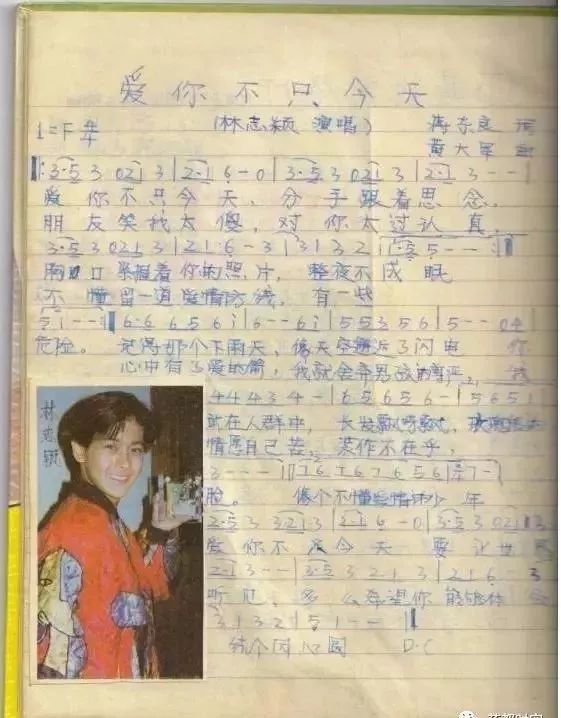 爱你不只今天
1=F 4/4 (林志颖 演唱) 词
黄大军 曲
3·5 3 0213 | 2·1 6 - 0 | 3·5 3 0213 | 2·1 3 - - |
爱你不只今天，分手跟着思念。
朋友笑我太傻，对你太过认真。
3·5 3 0213 | 2 1 6 - 3 | 3 1 3 2 | 1·5 5 - - :|
胸口 着你的照片，整夜不成眠
不懂留一道爱情防线。有一些
5 1 - - | 6·6 6 5 6 i | 6 - - 6 i | 5 5 3 5 6 | 5 - - 04
危险。记得那个下雨天，像天空 了闪电 你
心中有了爱的箭，我就舍弃男孩的尊严， 我
4 4 4 3 4 - | 6 5 6 5 6 - | 5 6 5 1
站在人群中，长发飘呀飘，
情愿自己苦，装作不在乎，
3 - - - | 7 6 7 6 7 6 5 6 | 7 -
脸。 像个不懂爱情 少年
林志颖
2·5 3 3213 | 2·1 6 - 0 | 3·5 3 021 3
爱你不只今天 要让世
2·1 3 - - | 3·5 3 2 1 3 | 2 1 6 · 3
听见，多么希望你能够体会
3 1 3 2 | 5 1 - - |
结个同心圆 D·C